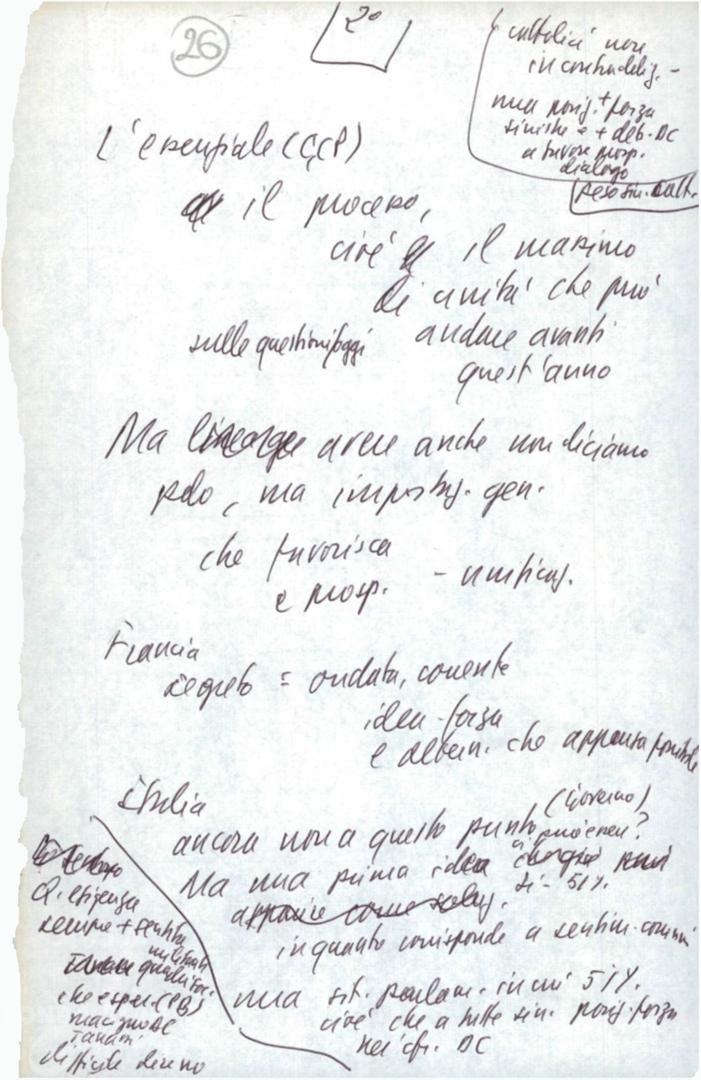 26
2°
cattolici non
in contraddiz. -
una posiz. + forza
sinistre e + deb. DC
a favore prosp.
dialogo
peso sin. catt.
L'essenziale (CCP)
il processo,
cioè il massimo
di unità che può
andare avanti
quest'anno
sulle questioni oggi
Ma avere anche non diciamo
, ma impostaz. gen.
che favorisca
e prosp. - unificaz.
Francia
segreto = ondata, corrente
idea-forza
e che appariva possibile
Italia
(Governo)
ancora non a questo punto
può esserci?
Ma una prima idea
si - 51%.
appare come soluz.
in quanto corrisponde a sentim. comuni
una sit. parlam. in cui 51%.
cioè che a tutte sin. posiz. forza
nei cfr. DC
esigenza
sempre + sentita
che esper. (PB)
macigno DC
Tanassi
difficile dire no